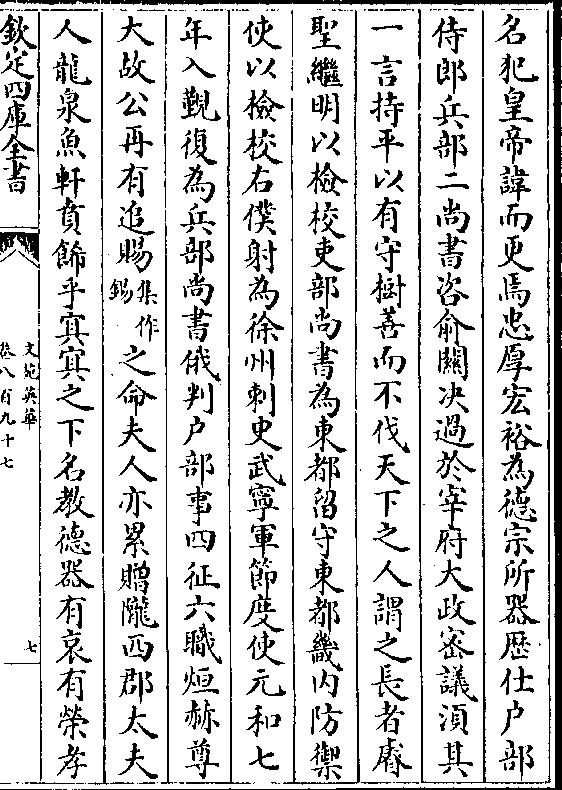 名犯皇帝諱而更焉忠厚宏裕為德宗所器歴仕户部
侍郎兵部二尚書咨俞關决過於宰府大政宻議湏其
一言持平以有守樹善而不伐天下之人謂之長者睿
聖繼明以檢校吏部尚書為東都留守東都畿内防禦
使以檢校右僕射為徐州刺史武寧軍節度使元和七
年入覲復為兵部尚書俄判户部事四征六職烜赫尊
大故公再有追賜集作錫之命夫人亦累贈隴西郡太夫
人龍泉魚軒賁飾乎寘寘之下名教德器有哀有榮孝
欽定四庫全書
文苑英華
卷八百九十七
七